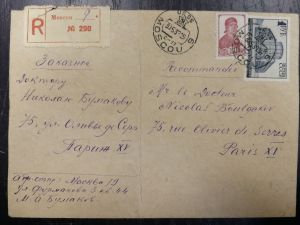 R
Москва 9
№ 290
MOSCOU
Заказное
Доктору
Николаю Булгакову
75, ул. Оливье де Серр
Париж XV
Recommandée
Mr le Docteur
Nicolas Boulgakov
75, rue Olivier de Serres
Paris XV
Адр. отпр.: Москва 19
ул. Фурманова 3 кв. 44
М. А. Булгаков